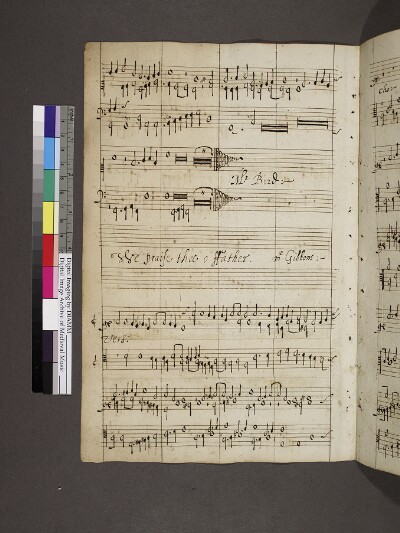 Mr Bird:~
We praise thee o ffather. mr Gibbons:~
Verse:
Digital Imaging by DIAMM
Digital Image Archive of Medieval Music